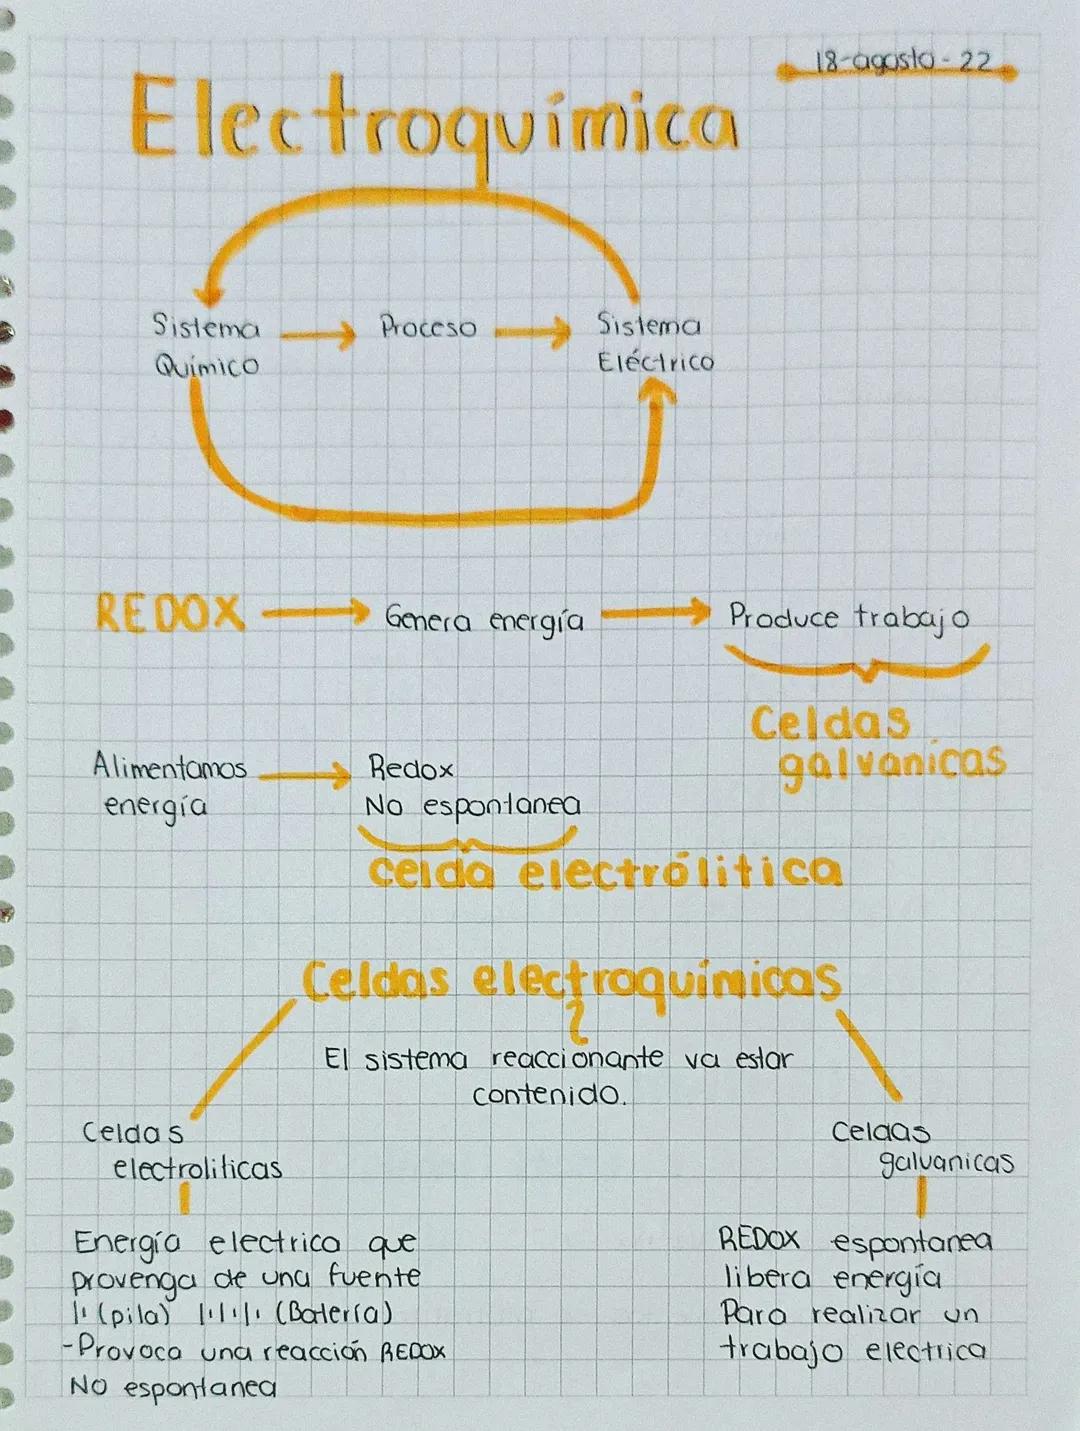 18-agosto-22
Electroquímica
Sistema Químico
Proceso
Sistema Eléctrico
REDOX
Genera energía
Produce trabajo
Celdas
galvanicas
Alimentamos
energía
Redox
No espontanea
celda electrólitica
Celdas electroquímicas
El sistema reaccionante va estar
contenido.
Celdas
electroliticas
Celdas
galvanicas
Energía electrica que
provenga de una fuente
(pila) (Batería)
-Provoca una reacción REDOX
No espontanea
REDOX espontanea
libera energía
Para realizar un
trabajo electrica